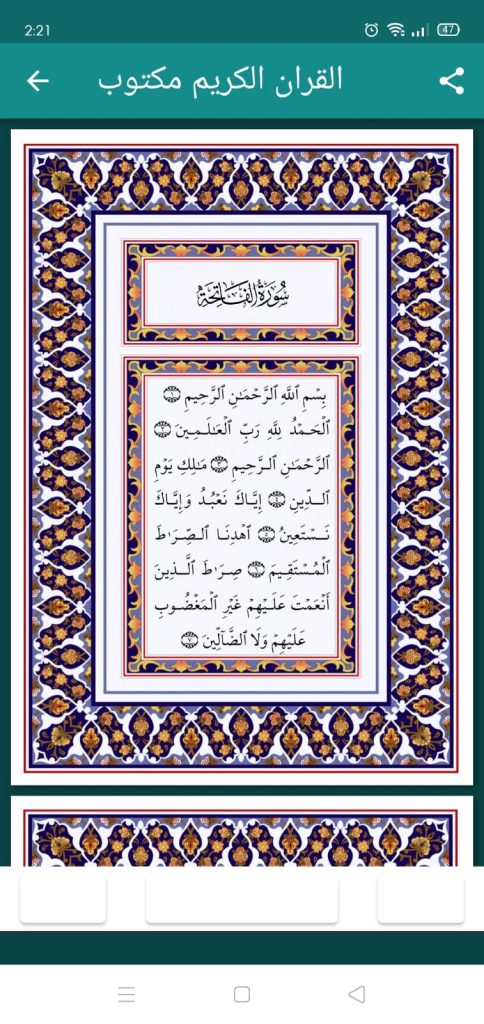 2:21
47
القران الكريم مكتوب
سُورَةُ الْفَاتِحَةِ
بِسْمِ ٱللَّهِ ٱلرَّحْمَٰنِ ٱلرَّحِيمِ ١
ٱلْحَمْدُ لِلَّهِ رَبِّ ٱلْعَٰلَمِينَ ٢
ٱلرَّحْمَٰنِ ٱلرَّحِيمِ ٣ مَٰلِكِ يَوْمِ
ٱلدِّينِ ٤ إِيَّاكَ نَعْبُدُ وَإِيَّاكَ
نَسْتَعِينُ ٥ ٱهْدِنَا ٱلصِّرَٰطَ
ٱلْمُسْتَقِيمَ ٦ صِرَٰطَ ٱلَّذِينَ
أَنْعَمْتَ عَلَيْهِمْ غَيْرِ ٱلْمَغْضُوبِ
عَلَيْهِمْ وَلَا ٱلضَّآلِّينَ ٧